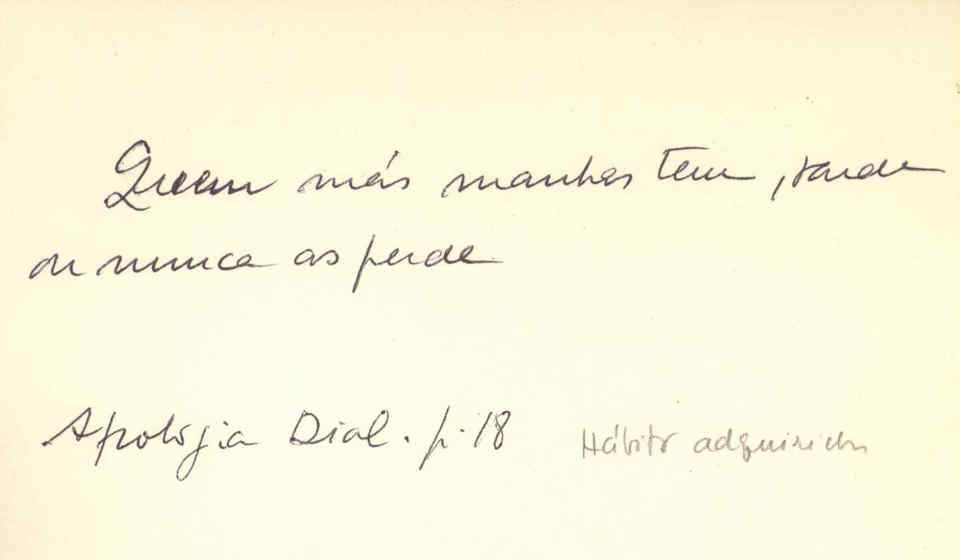 Quem más manhas tem, tarde
ou nunca as perde
Apologia Dial. p. 18 Hábito adquirido